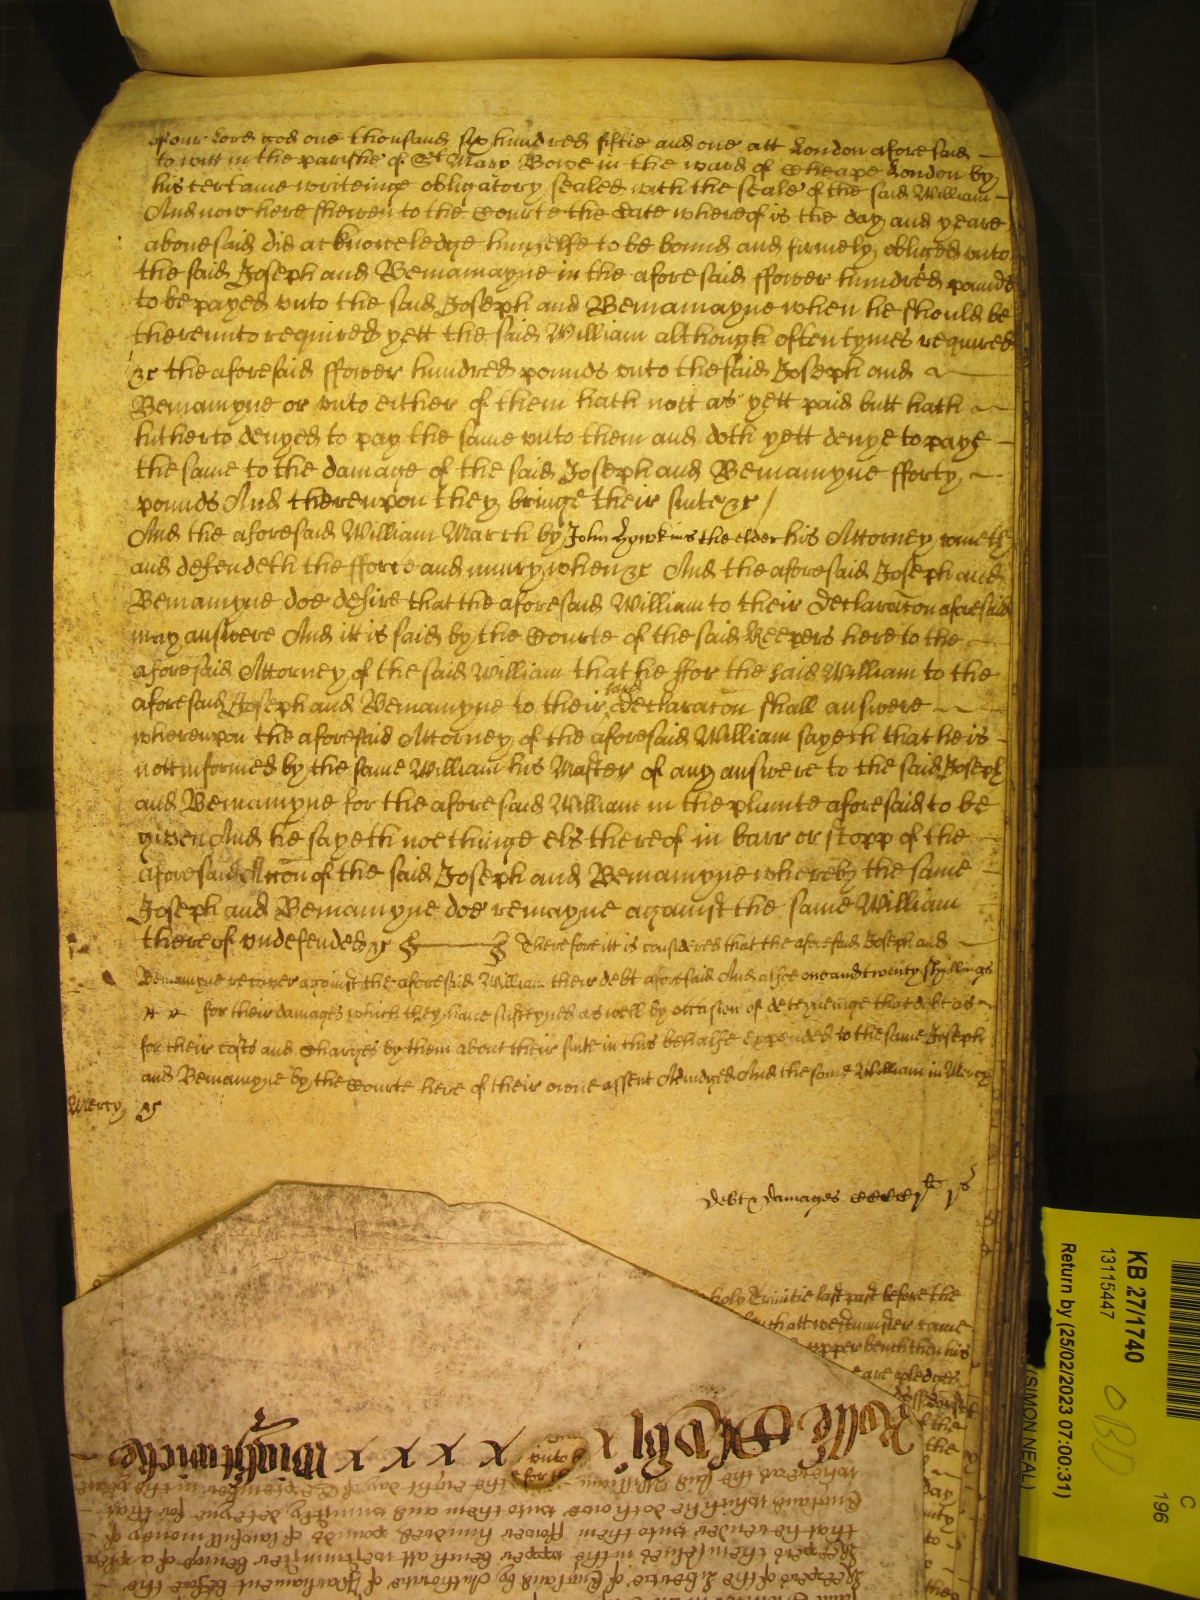 of our Lord god one thousand six hundred fiftie and one att London aforesaid
to witt in the parishe of St Mary Bowe in the ward of Cheape London by
his certaine writeinge obligatory sealed with the seale of the said William
And now here shewen to the Courte the date whereof is the day and yeare
abovesaid did acknowledge himselfe to be bound and firmely obliged unto
the said Joseph and Beniamayne in the aforesaid ffower hundred pounds
to be payed unto the said Joseph and Beniamayne when he should be
thereunto required yett the said William although oftentymes required
&c the aforesaid ffower hundred pounds unto the said Joseph and
Beniamyne or unto either of them hath nott as yett paid butt hath
hitherto denyed to pay the same unto them and doth yett denye to paye
the same to the damage of the said Joseph and Beniamyne fforty
pounds And thereupon they bringe their suite &c /
And the aforesaid William March by John Hawkins the elder his Attorney cometh
and defendeth the fforce and iniury when &c And the aforesaid Joseph and
Beniamyne doe desire that the aforesaid William to their declaracon aforesaid
may answere And itt is said by the Courte of the said Keepers here to the
aforesaid Attorney of the said William that he ffor the said William to the
aforesaid Joseph and Beniamyne to their said declaracon shall answere
whereupon the aforesaid Attorney of the aforesaid William sayeth that he is
nott informed by the same William his Master of any answere to the said Joseph
and Beniamyne for the aforesaid William in the plainte aforesaid to be
given And he sayeth noethinge els thereof in barr or stopp of the
aforesaid Accon of the said Joseph and Beniamyne whereby the same
Joseph and Beniamyne doe remayne against the same William
thereof undefended &c Therefore itt is considered that the aforesaid Joseph and
Beniamyne recover against the aforesaid William their debt aforesaid And alsoe one and twenty shillings
for their damages which they have susteyned as well by occasion of deteyneinge that debt as
for their costs and charges by them about their suite in this behalfe expended to the same Joseph
and Beniamyne by the Courte here of their owne assent Adiudged And the same William in Mercy
Mercy &c
debt & damages ccccj li j s
holy Trinitie last past before the
att westminster came
upper bench then his
are pledges
the
the
day
Rolle
x x x x
Wightwicke
whereas the said William the eight day of September in the yeare
England which he doth owe unto them and uniustly deteyne for that
that he render unto them ffower hundred pounds of lawfull money of
Keepers themselves in the upper bench att westminster beinge of a plea
Keepers of the Liberties of England by Authoritie of Parliament before the
KB 27/1740
13115447
Return by (25/02/2023 07:00:31)
(SIMON NEAL)
C
196